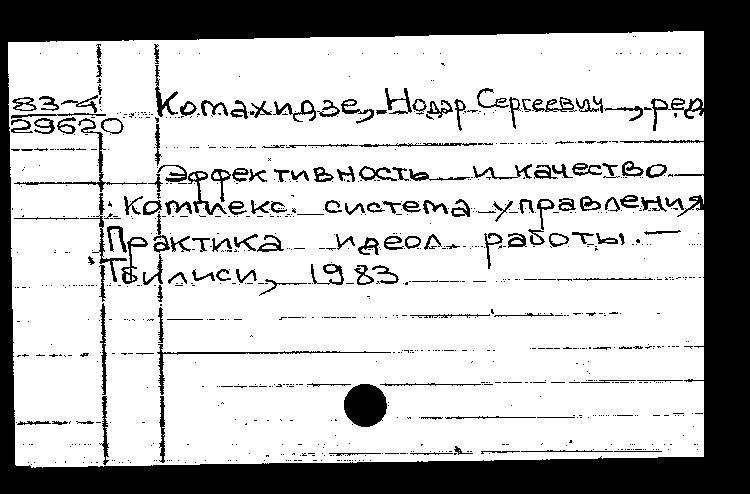 83-4
29620
Комахидзе, Нодар Сергеевич, ред
Эффективность и качество
: Комплекс. система управления
Практика идеол. работы. —
Тбилиси, 1983.